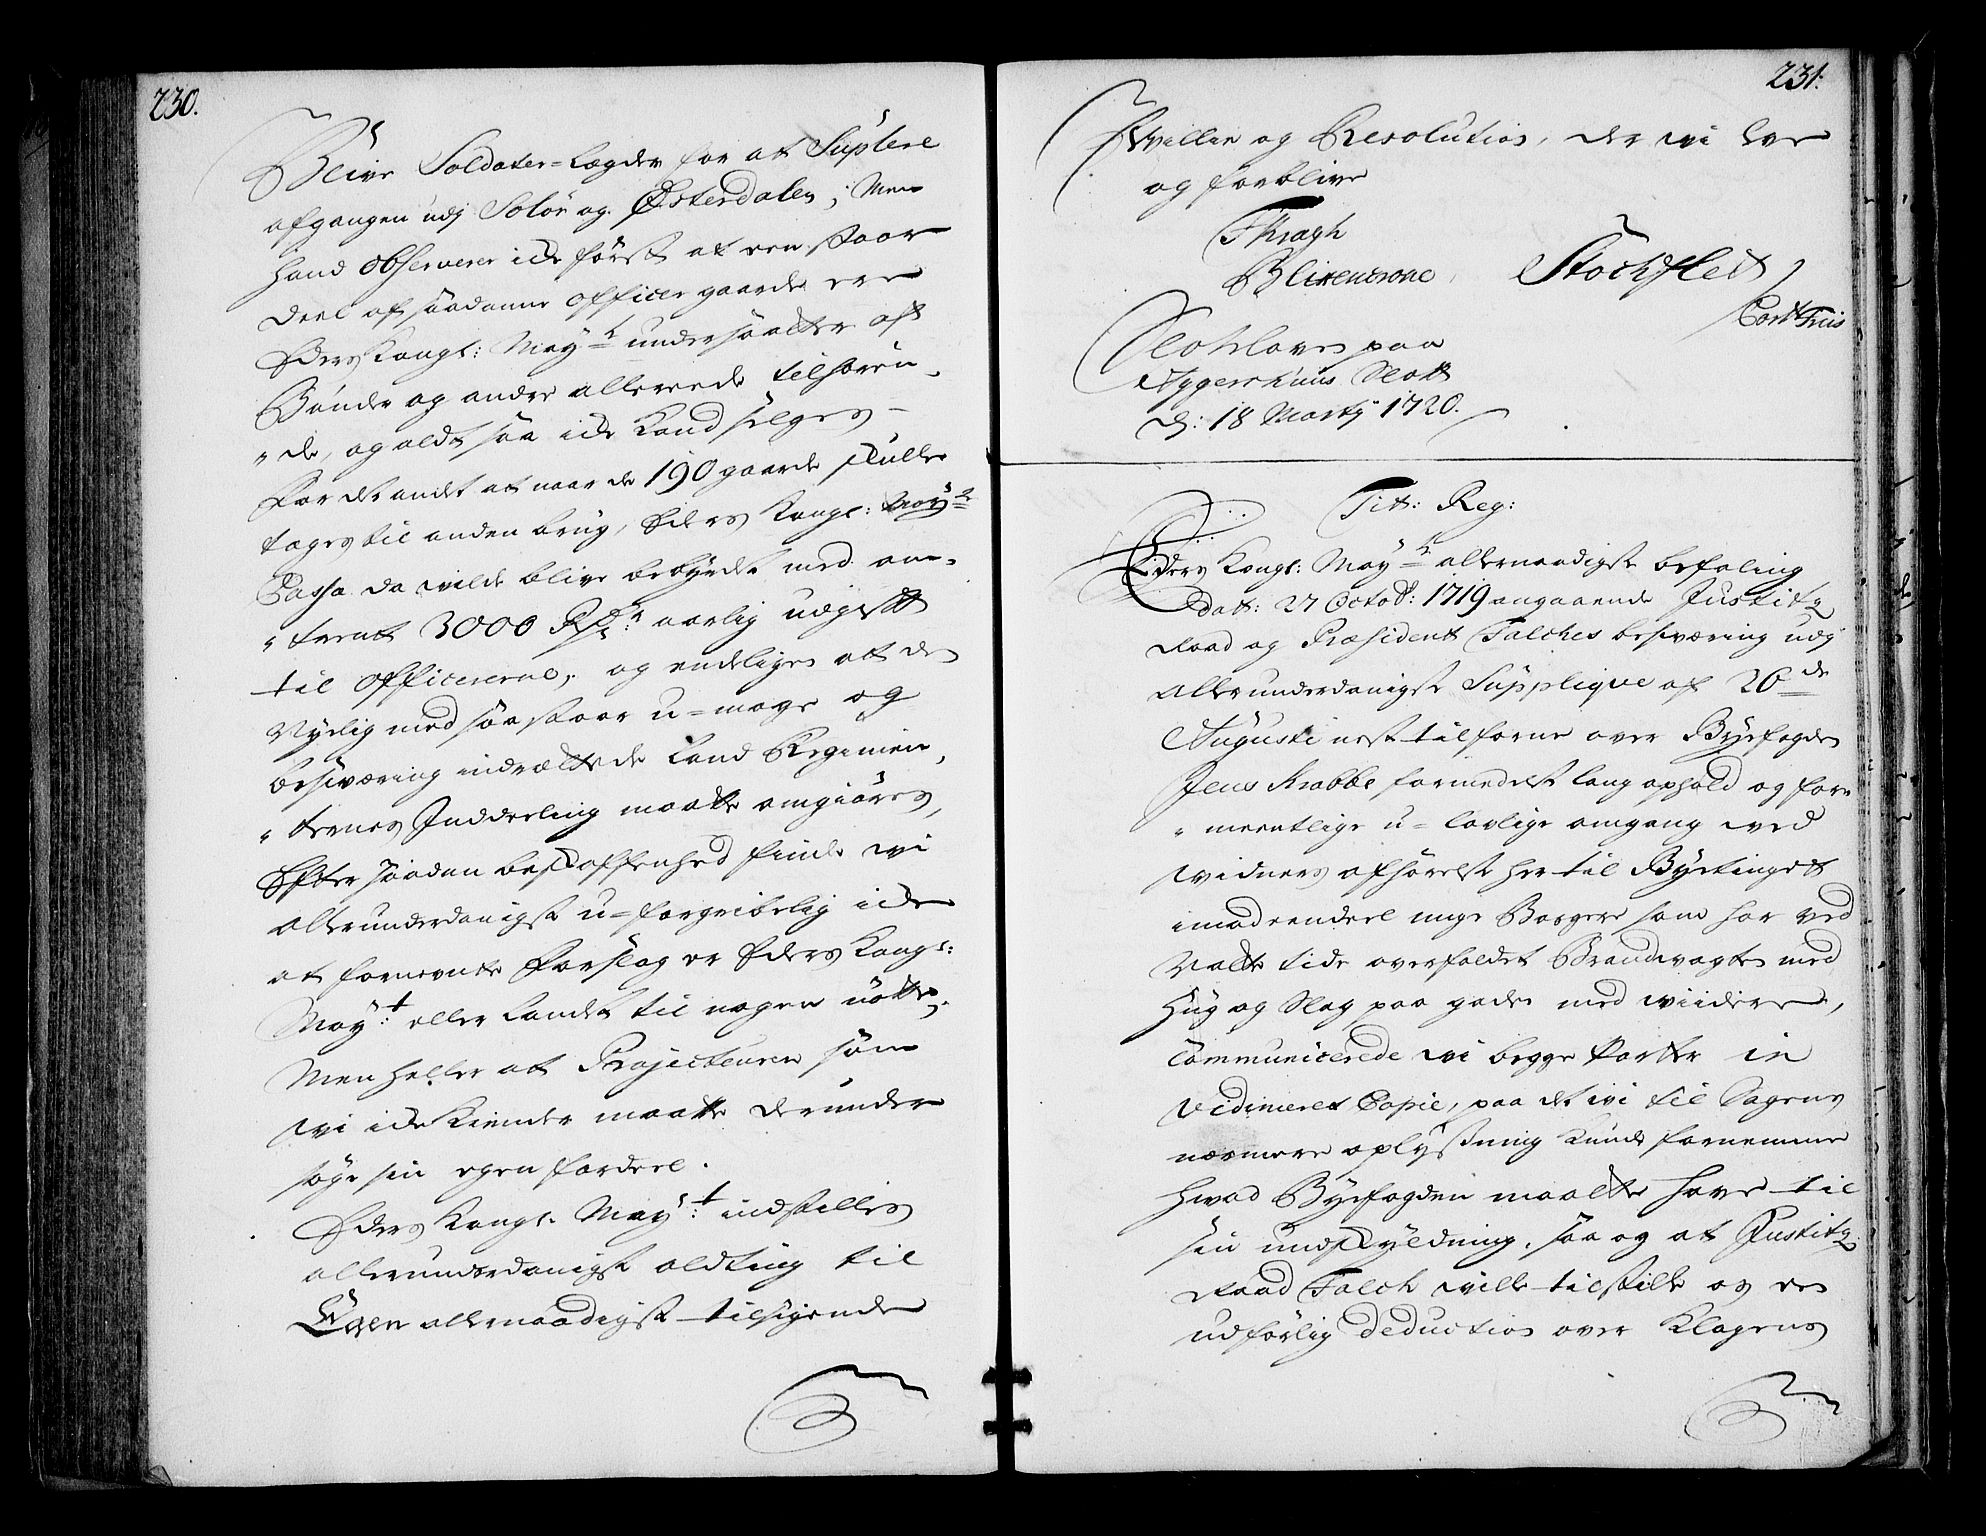 230.
Blive Soldater-Lægder for at Suplere
afgangen udj Solör og Østerdalen; Men
hand observerer icke först at een stoor
deel af saadanne officer gaarde ere
Eders Kongl: May:ts undersaatter aff
Bönder og andre allereede tilhören-
"de, og aldt saa icke kand selges
For det andet at naar de 190 gaarde skulle
tages til anden brug, Eders Kongl: May:ts
Cassa da vilde blive bebyrdet med om-
"trent 3000 Rdr: aarlig udgifft
til officererne, og endeligen at den
Nylig med saa stoor u-mage og
besværing indrættede Land Regimen-
"ternes Inddeeling maatte omgiöres,
Efter saadan beskaffenhed finde wi
allerunderdanigst u-forgribelig icke
at fornevnte Forslag er Eders Kongl:
May:t eller Landet til nogen nötte,
Men heller at Projecteuren som
wi icke kiender maatte derunder
söge sin egen fordeel.
Eders Kongl. May:t indstilles
allerunderdanigst aldting til
Egen allernaadigst tilsigende
231.
Villie og Resolution, der wi leve
og forblive
FKragh
Blixencrone, Stockfleth
Cort Friis
Slotsloven paa
Aggershuus Slott
d: 18 Martij 1720.
Tit: Reg:
Eders Kongl: May:ts allernaadigste befaling
dat: 27 Octob: 1719 angaaende Justitz
Raad og Præsident Falches besværing udj
allerunderdanigste Supplique af 26de
Augusti nest tilforne over Byefogden
Jens Krabbe formedelst lang ophold og for-
"meentlige u-lovlige omgang ved
widners afhörelse her til Byetinget
imod eendeel unge Borgere som har ved
Natte tide overfaldet Brandvagten med
Hug og Slag paa gaden med wiidere,
Communicerede wi begge Parter in
Vidimeret Copie, paa det wi til Sagens
nærmere oplysning kunde fornemme
hvad Byefogden maatte have til
sin undskyldning, saa og at Justitz
Raad Falch wille tilstille os en
udförlig Deduction over Klagens